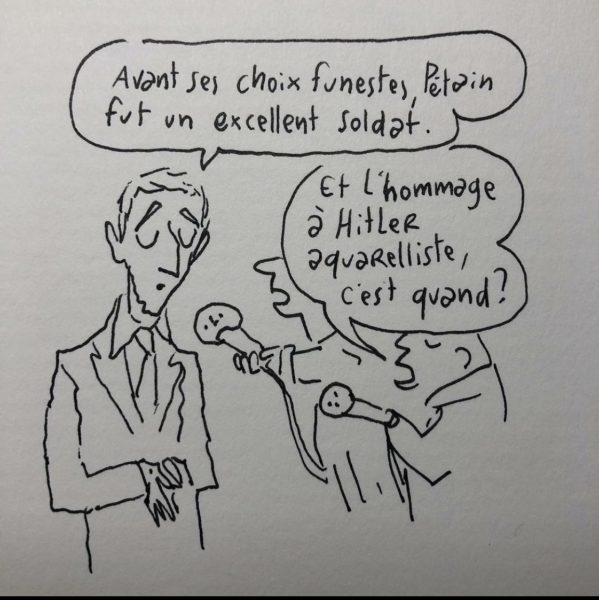 Avant ses choix funestes, Pétain
fut un excellent soldat.
Et l'hommage
à Hitler
aquarelliste,
c'est quand?